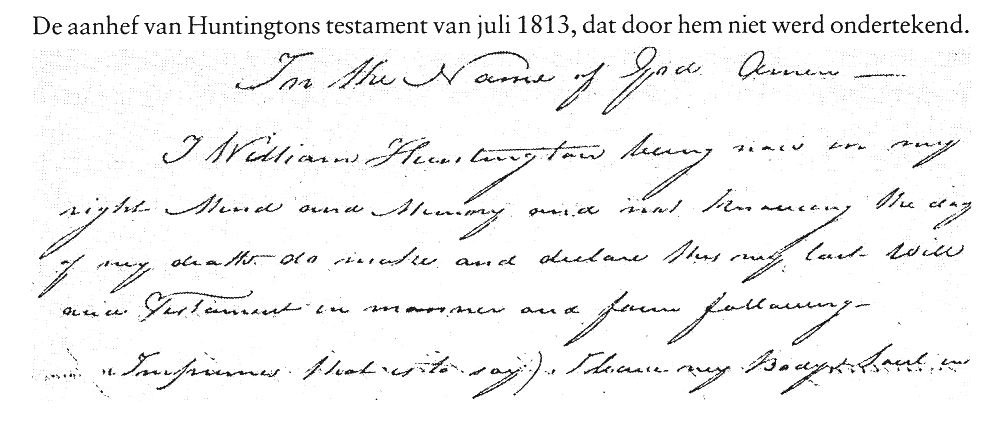 De aanhef van Huntingtons testament van juli 1813, dat door hem niet werd ondertekend.
In the Name of God Amen —
I William Huntington being now in my
right Mind and Memory and not knowing the day
of my death do make and declare this my last Will
and Testament in manner and form following —
Imprimis that is to say) I leave my Body & Soul in